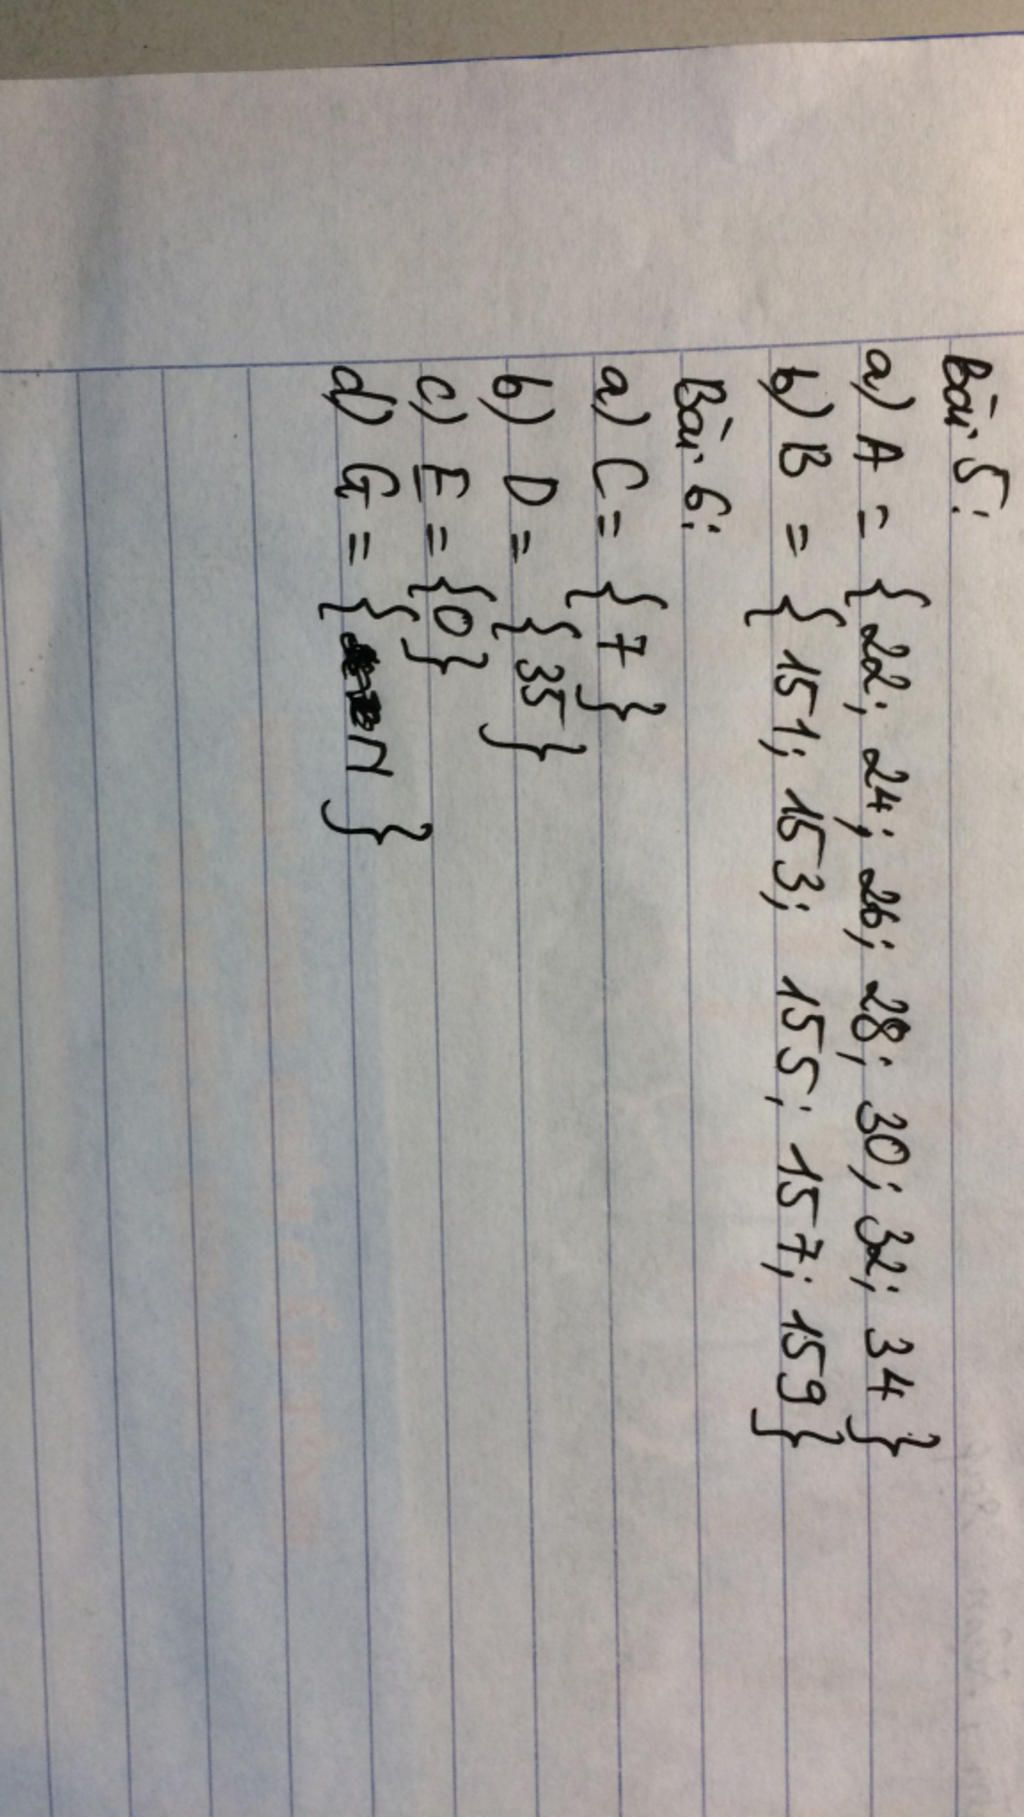 Bài 5:
a) A = {22; 24; 26; 28; 30; 32; 34}
b) B = {151; 153; 155; 157; 159}
Bài 6:
a) C = {7}
b) D = {35}
c) E = {0}
d) G = {N}